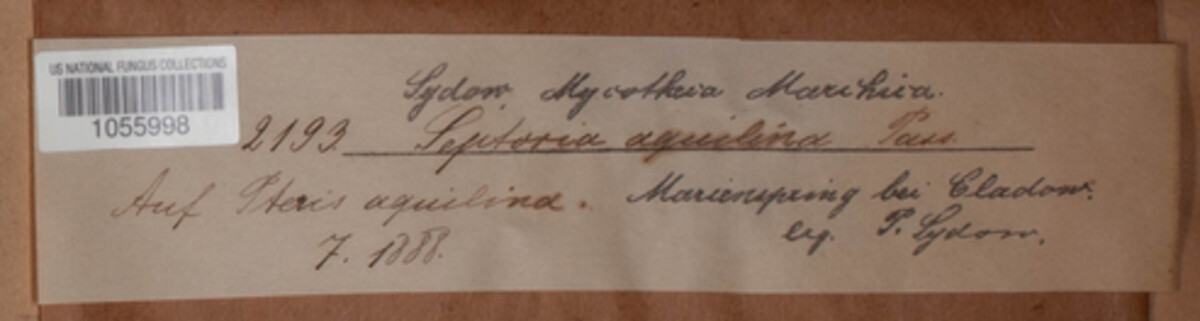 US NATIONAL FUNGUS COLLECTIONS
1055998
Sydow, Mycotheca Marchica.
2193 Septoria aquilina Pass.
Auf Pteris aquilina. Marienspring bei Cladow.
7. 1888. leg. P. Sydow.